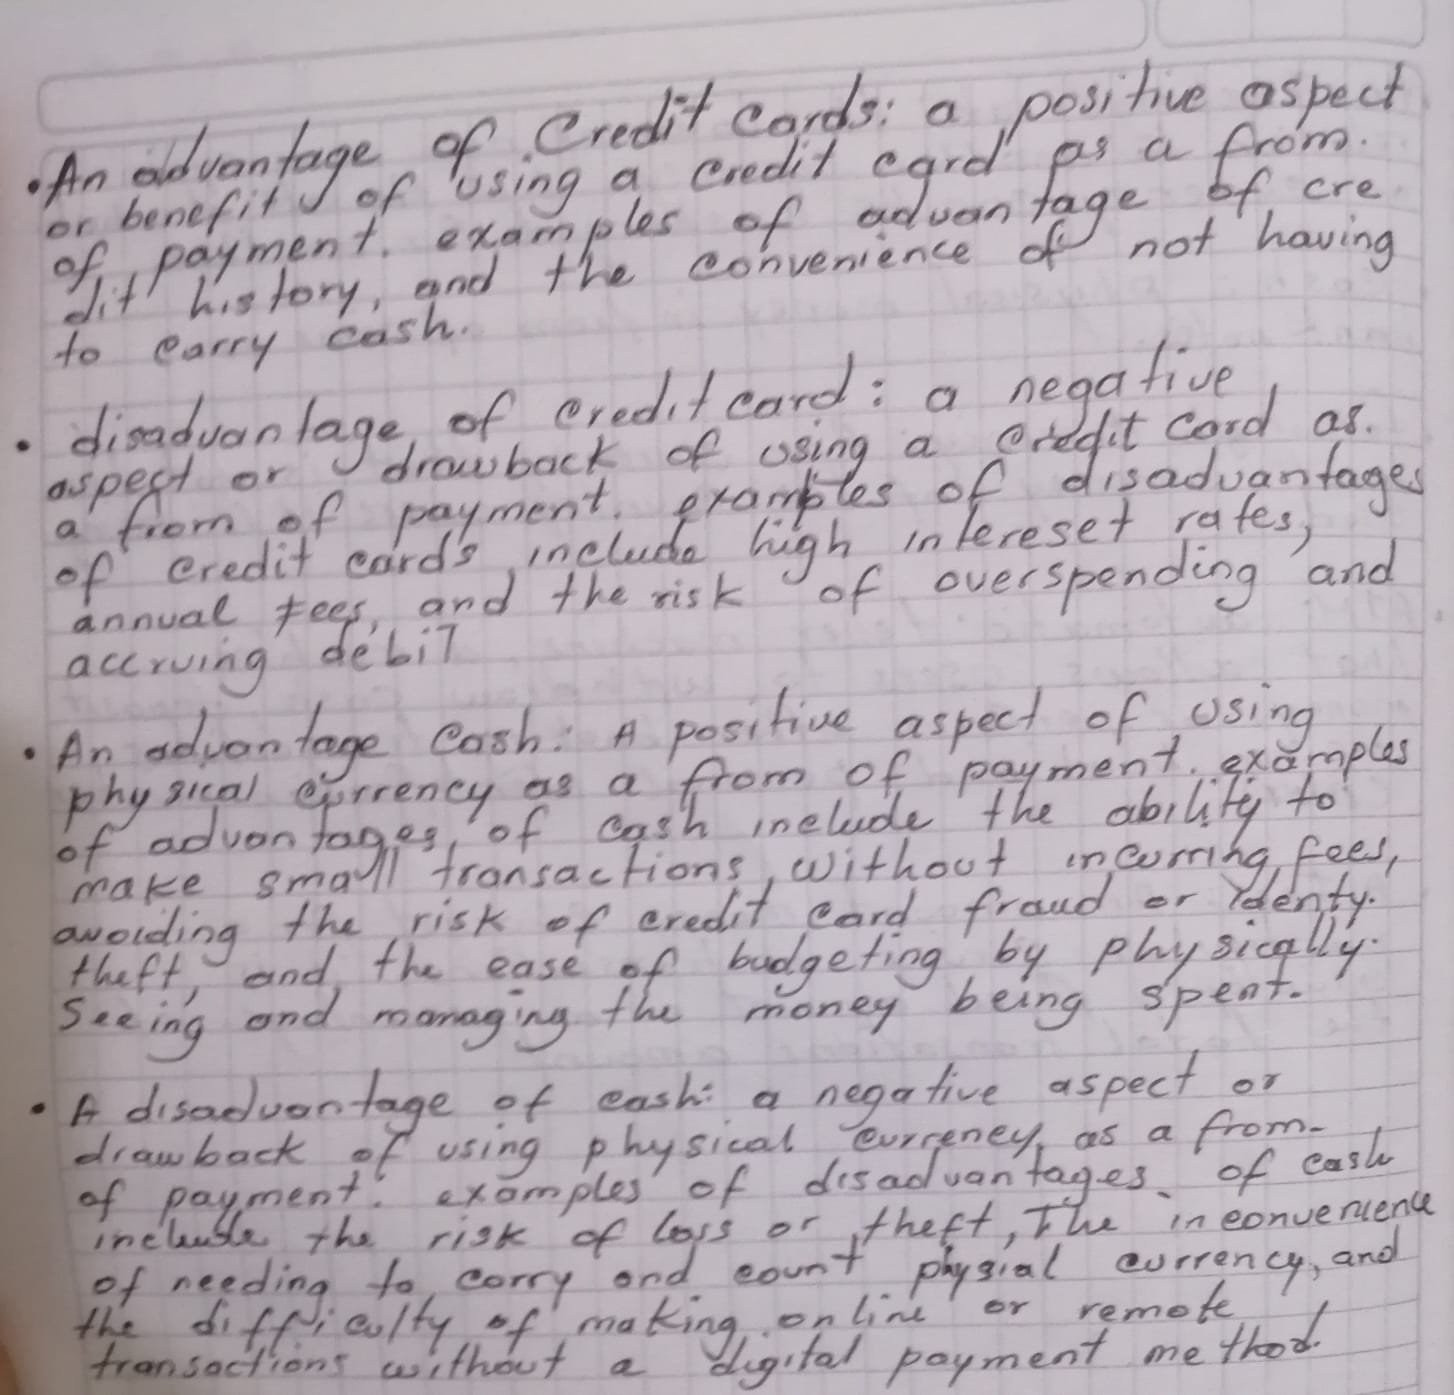 •An advantage of Credit Cards: a positive aspect
or benefit of using a credit card as a from.
of payment. examples of advantage of cre
dit history, and the convenience of not having
to carry cash.
• disadvantage of credit card: a negative
aspect or drawback of using a credit card as.
a from of payment. examples of disadvantages
of credit cards include high intereset rates,
annual fees, and the risk of overspending and
accruing debit
• An advantage Cash: A positive aspect of using
physical currency as a from of payment. examples
of advantages of cash include the ability to
make small transactions, without incurring fees,
avoiding the risk of credit card fraud or identy.
theft, and the ease of budgeting by physically.
Seeing and managing the money being spent.
• A disadvantage of cash: a negative aspect or
drawback of using physical currency as a from-
of payment. examples of disadvantages of cash
include the risk of loss or theft, The inconvenience
of needing to carry and count physial currency, and
the difficulty of making online or remote
transactions without a digital payment method.